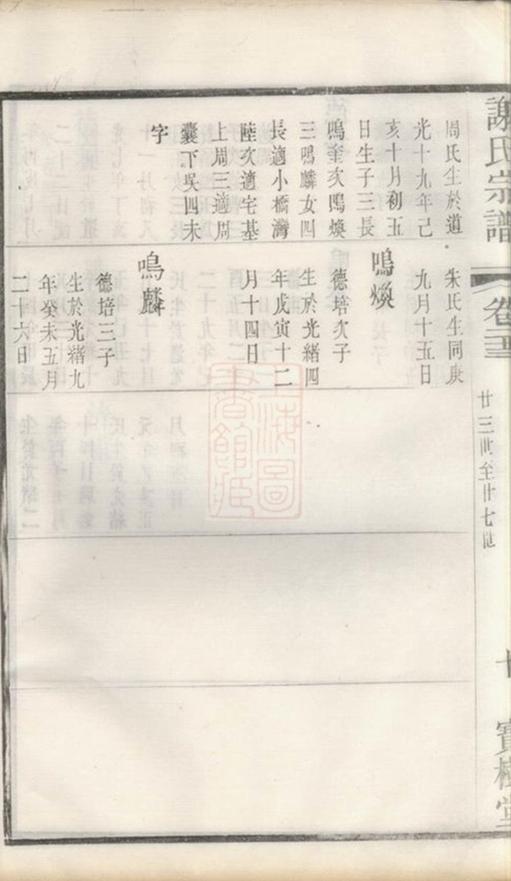 謝氏宗譜
卷三
廿三世至廿七世
寶樹堂
周氏生於道
光十九年己
亥十月初五
日生子三長
鳴奎次鳴煥
三鳴麟女四
長適小橋灣
陸次適宅基
上周三適周
囊下吳四未
字
朱氏生同庚
九月十五日
鳴煥
德培次子
生於光緒四
年戊寅十二
月十四日
鳴麟
德培三子
生於光緒九
年癸未五月
二十六日
上海圖
書館藏